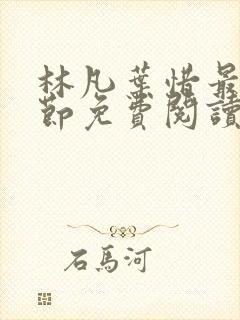 林凡葉惜最
節免費閱讀
石馬河